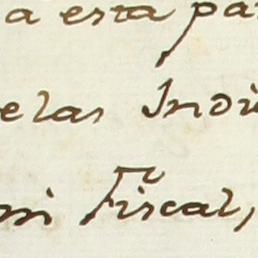 a esta pa
elas Indi
mi Fiscal,